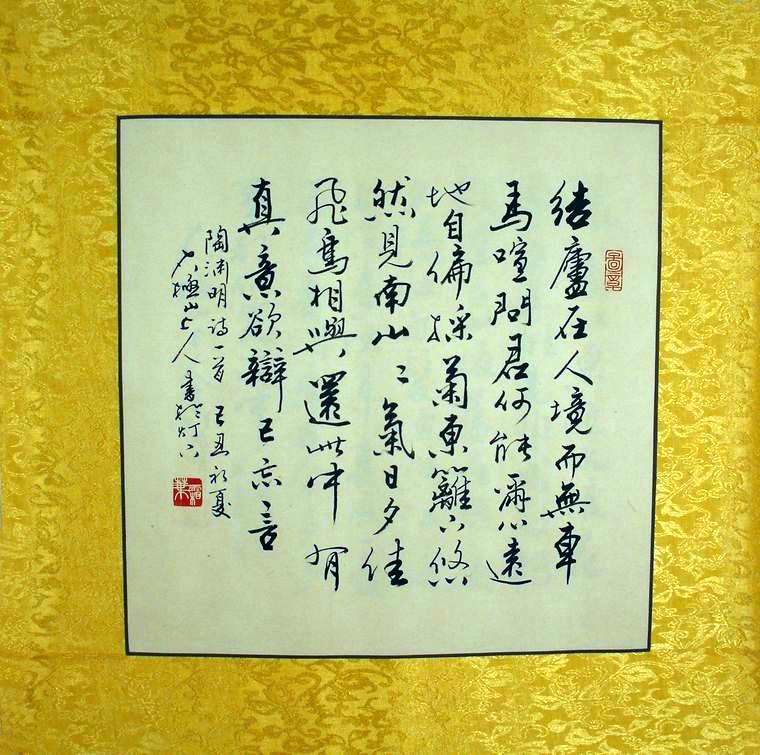 结廬在人境而無車
馬喧問君何能爾心遠
地自偏採菊東籬下悠
然見南山々氣日夕佳
飛鳥相與還此中有
真意欲辯已忘言
陶渊明诗一首 己丑初夏
山上人書於灯下